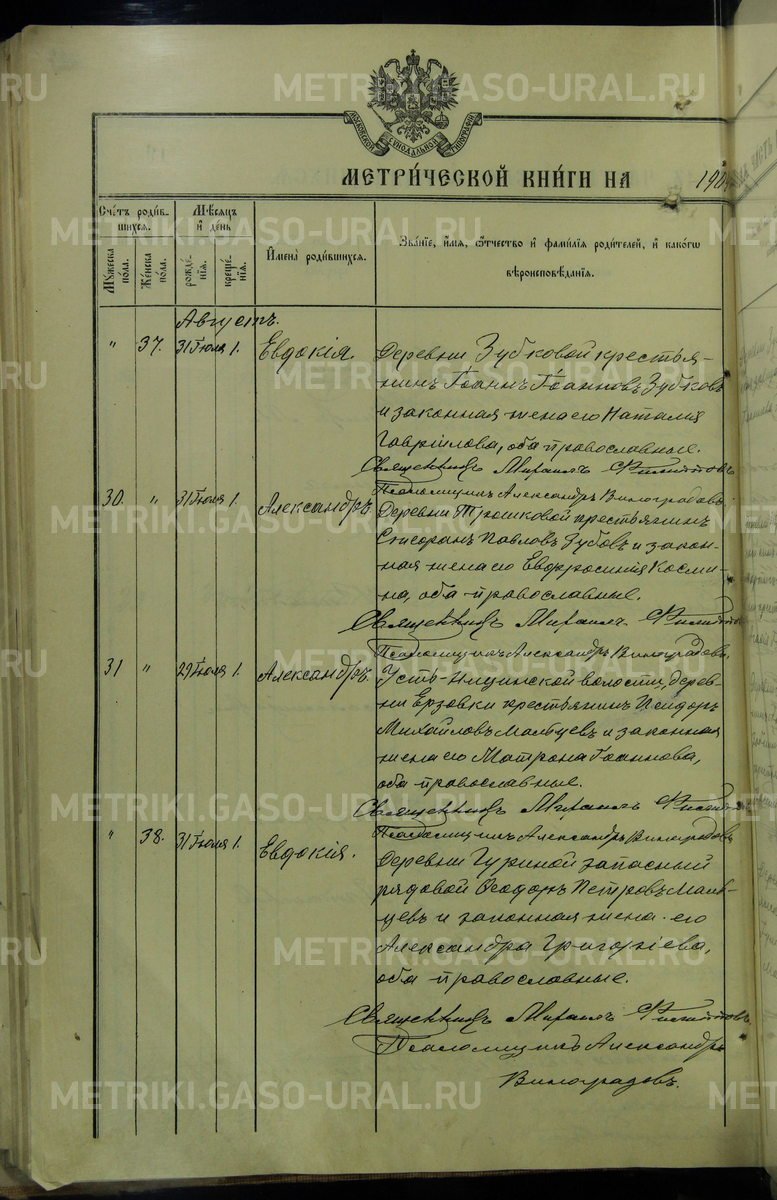 METRIKI.GASO-URAL.RU
МОСКОВСКОЙ СѴНОДАЛЬНОЙ ТИПОГРАФІИ
МЕТРИ́ЧЕСКОЙ КНИ́ГИ НА 190
Сче́тъ роди́вшихся.
Мꙋжеска по́ла.
Же́нска по́ла.
Мѣ́сяцъ и҆ день
рожде́нїя.
креще́нїя.
И҆мена̀ роди́вшихся.
Зва́нїе, и҆́мя, ѻ҆́тчество и҆ фами́лїя роди́телей, и҆ како́гѡ
вѣроисповѣ́данїя.
Августъ.
" 37. 31 Іюля 1. Евдокія. Деревни Зубковой крестья-
нинъ Іоаннъ Іоанновъ Зубковъ
и законная жена его Наталія
Гавріилова, оба православные.
Священникъ Михаилъ Филипповъ
Псаломщикъ Александръ Виноградовъ.
30. " 31 Іюля 1. Александръ. Деревни Трошковой крестьянинъ
Павловъ Зубовъ и закон-
ная жена его Евфросинія Косми-
на, оба православные.
Священникъ Михаилъ Филипповъ
Псаломщикъ Александръ Виноградовъ.
31 " 29 Іюля 1. Александръ. Усть-Ницинской волости, дерев-
ни Ерзовки крестьянинъ Исидоръ
Михайловъ Мальцевъ и законная
жена его Матрона Іоаннова,
оба православные.
Священникъ Михаилъ Филипповъ
Псаломщикъ Александръ Виноградовъ
" 38. 31 Іюля 1. Евдокія. Деревни Гуриной запасный
рядовой Ѳеодоръ Петровъ Маль-
цевъ и законная жена его
Александра Григоріева,
оба православные.
Священникъ Михаилъ Филипповъ
Псаломщикъ Александръ
Виноградовъ.